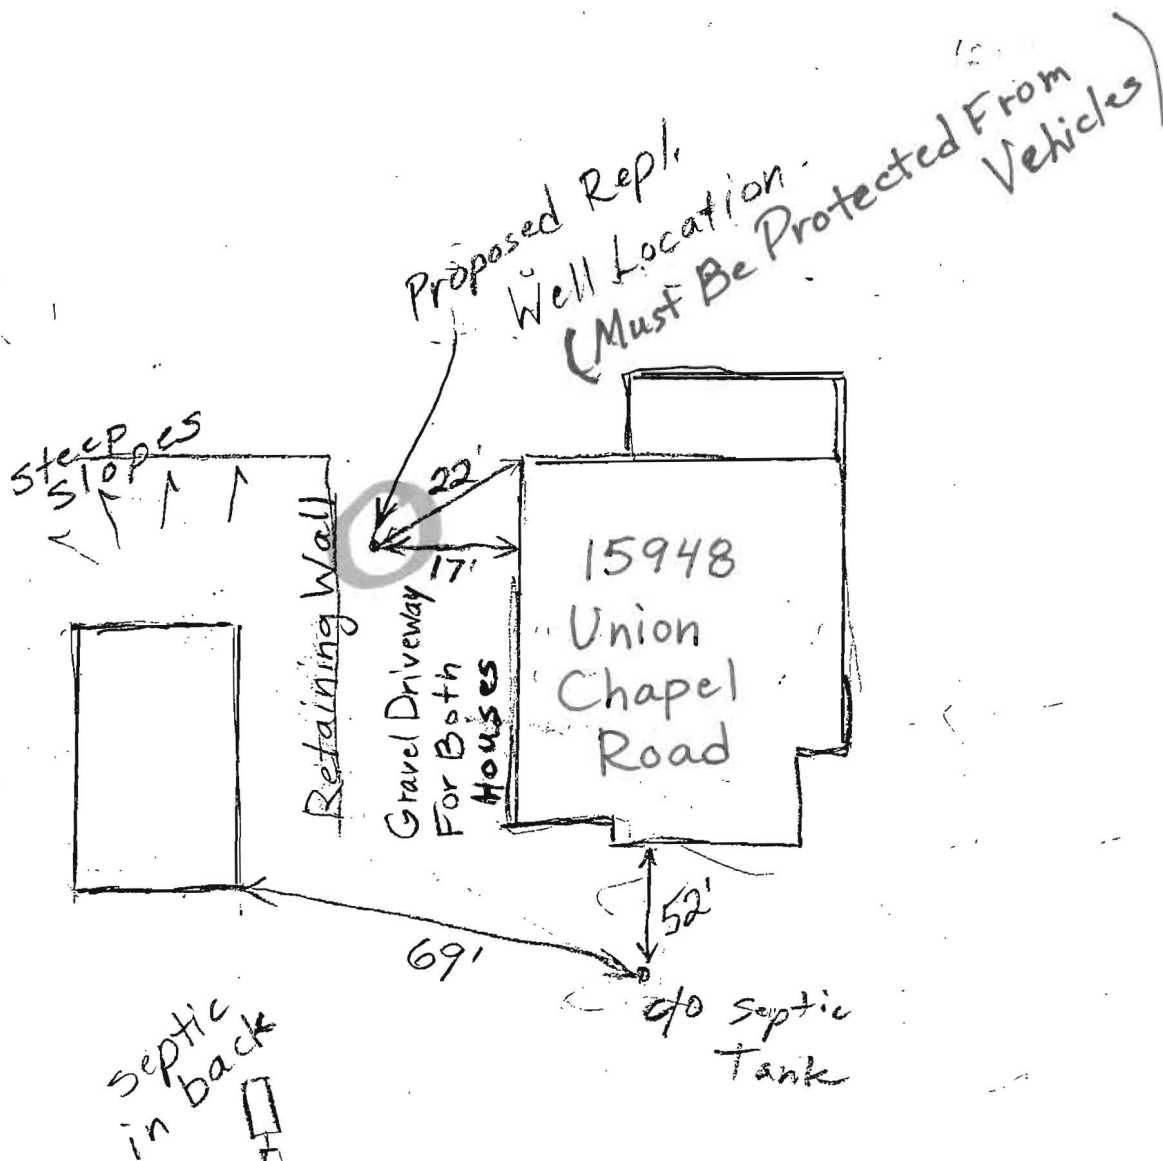 Proposed Repl.
Well Location
(Must Be Protected From
Vehicles)
steep
slopes
22'
17'
Retaining Wall
Gravel Driveway
For Both
Houses
15948
Union
Chapel
Road
52'
69'
c/o septic
Tank
septic
in back